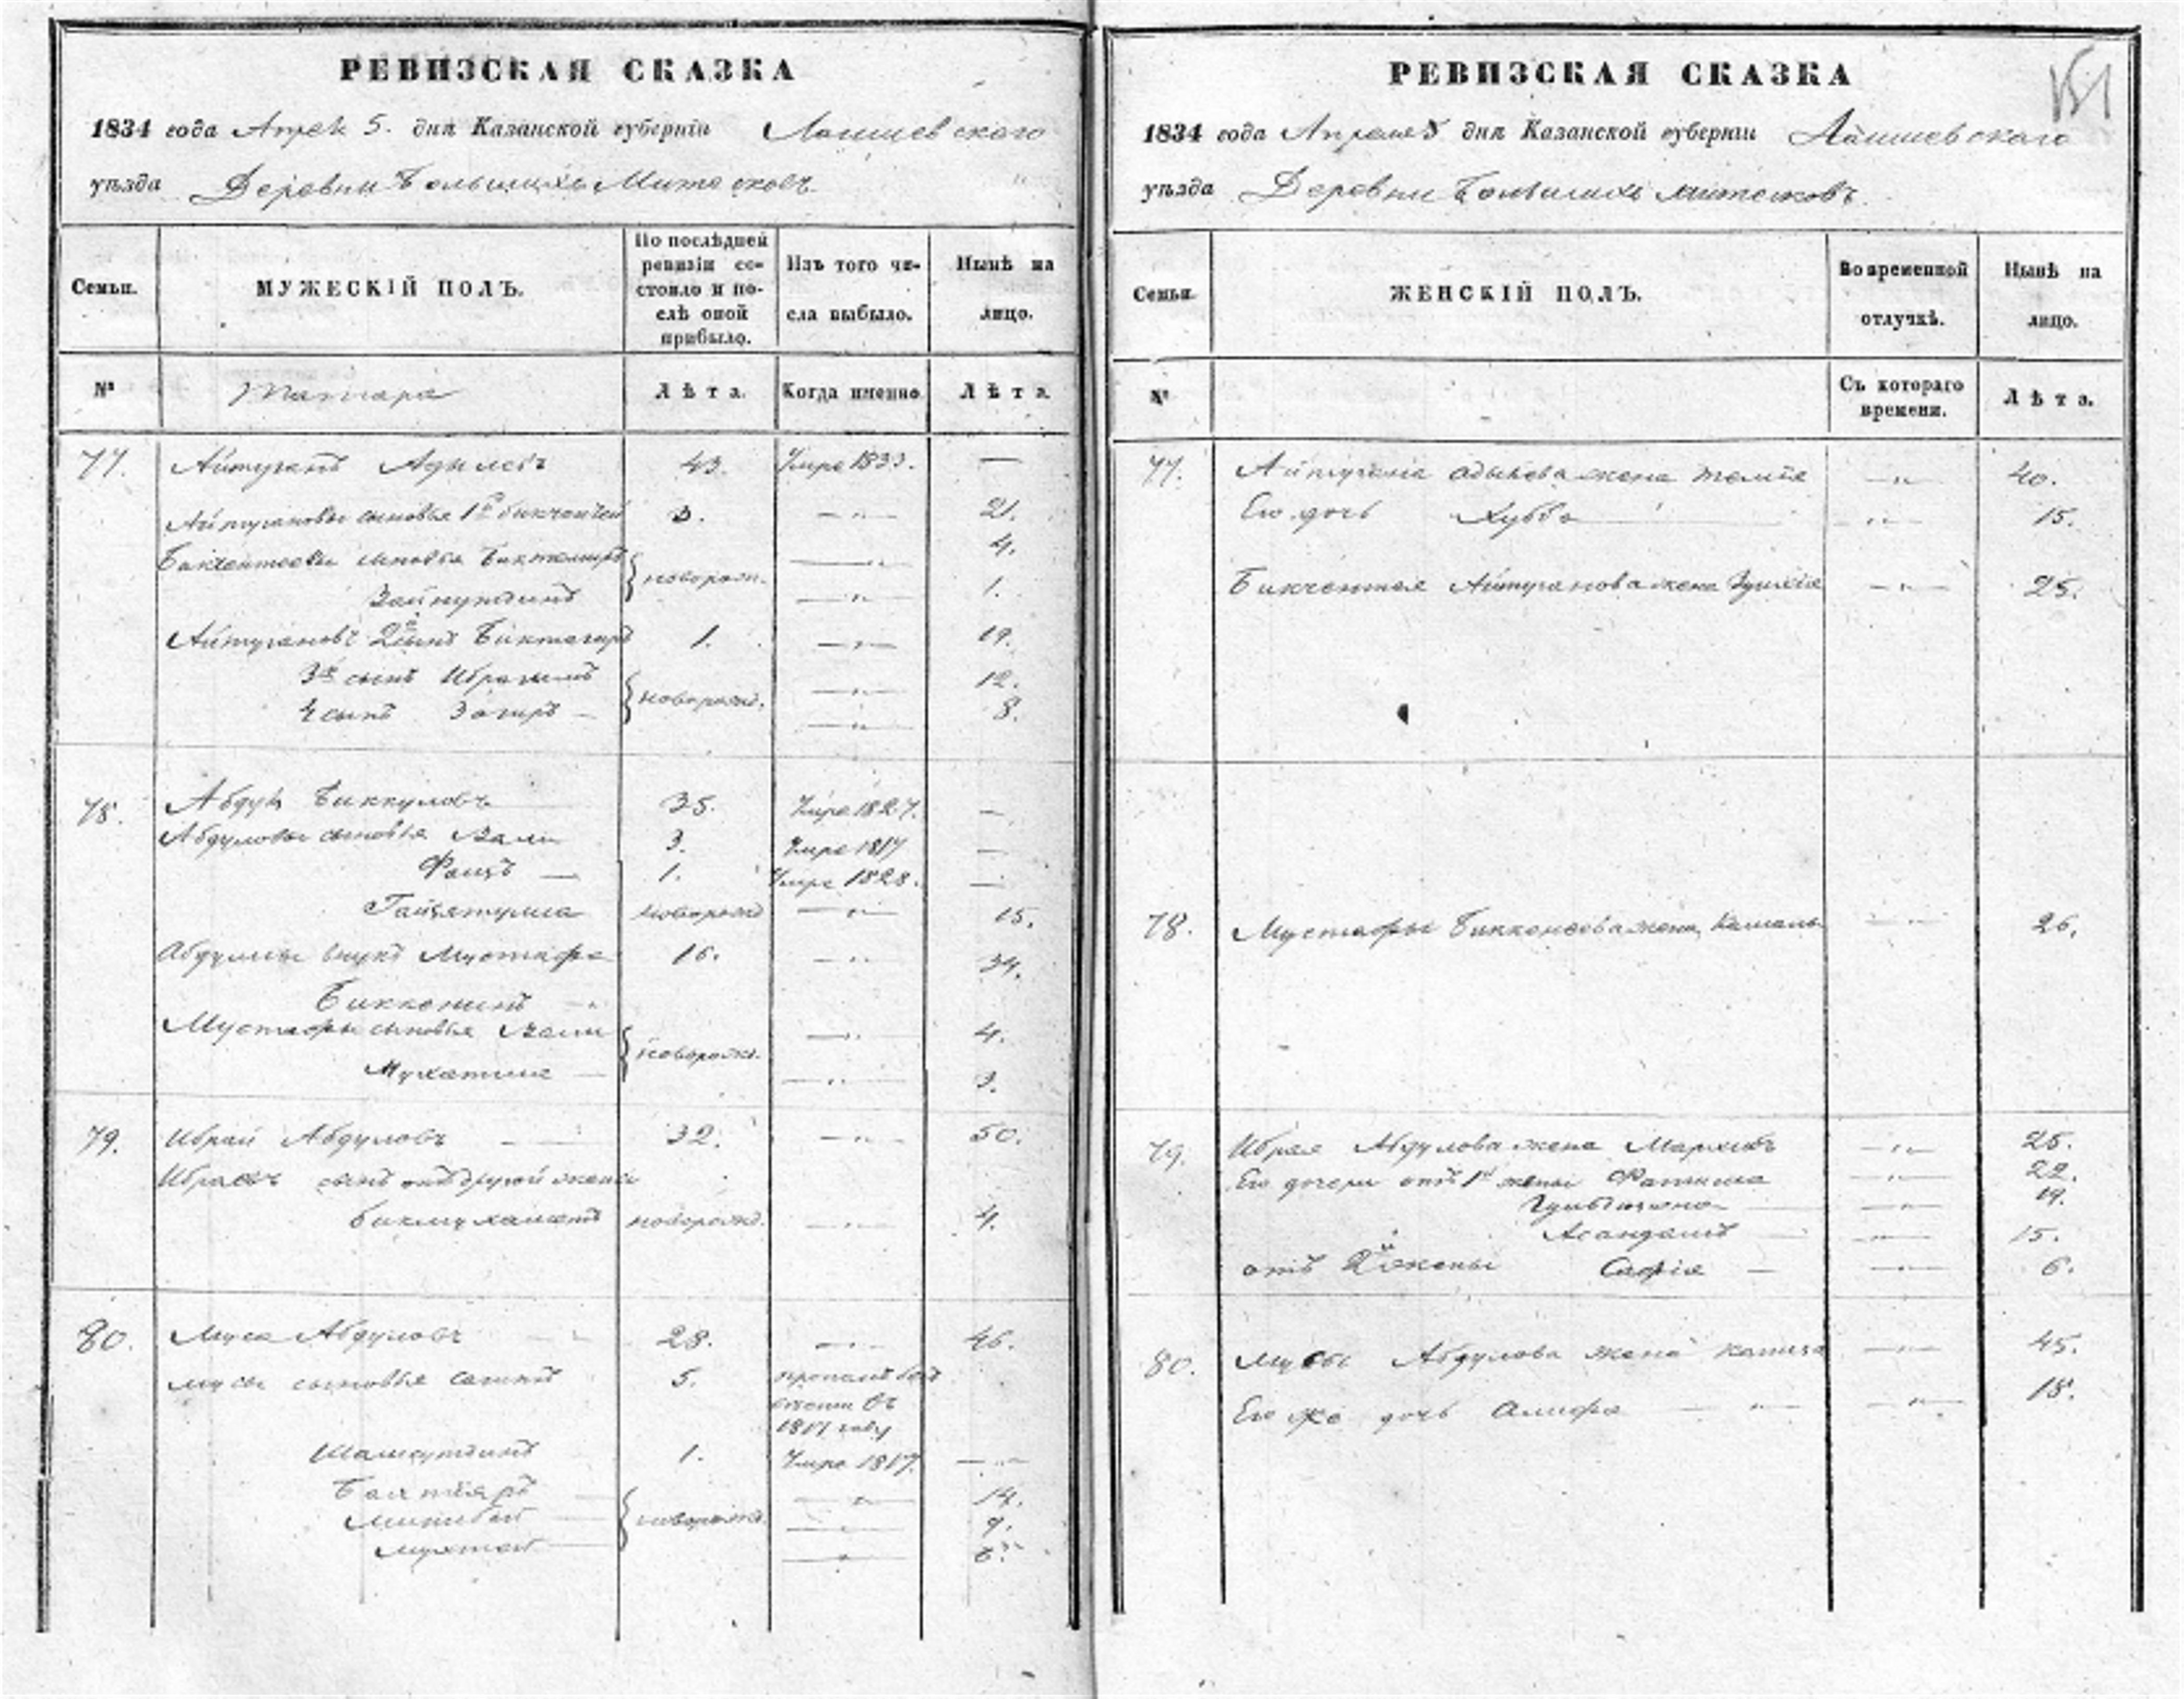 РЕВИЗСКАЯ СКАЗКА
1834 года Апреля 5. дня Казанской губерніи Лаишевского
уѣзда Деревни Большихъ Митесковъ
Семьи.
МУЖЕСКІЙ ПОЛЪ.
По послѣдней
ревизіи со-
стояло и по-
слѣ оной
прибыло.
Изъ того чи-
сла выбыло.
Нынѣ на
лицо.
№
Татара
Лѣта.
Когда именно.
Лѣта.
77. Айтуганъ Адилевъ 43. Умре 1833. —
Айтугановы сыновья 1й Бикчентей 3. —"— 21.
Бикчентеевы сыновья Биктемиръ { новорожд. —"— 4.
Зайнутдинъ —"— 1.
Айтугановъ 2й сынъ Биктагиръ 1. —"— 19.
3й сынъ Ибрагимъ { новорожд. —"— 12.
4 сынъ Загиръ — —"— 8.
78. Абдулъ Биккуловъ 35. Умре 1827. —
Абдуловы сыновья Вали 3. Умре 1817 —
Фаизъ — 1. Умре 1828. —
новорожд —"— 15.
Абдуллы внукъ Мустафа 16. —"— 34.
Мустафы сыновья Вали { новорожд. —"— 4.
—"— 3.
79. Ибрай Абдуловъ 32. —"— 50.
Ибраевъ сынъ отъ другой жены
Бикмухаметъ новорожд. —"— 4.
80. Муса Абдуловъ 28. —"— 46.
Мусы сыновья 5. пропалъ безъ
вѣсти въ
1817 году
Шамсутдинъ 1. Умре 1817. —"—
Бахтіяръ { новорожд. —"— 14.
—"— 9.
—"— 6.
РЕВИЗСКАЯ СКАЗКА
151
1834 года Апреля 5 дня Казанской губерніи Лаишевскаго
уѣзда Деревни Большихъ Митесковъ.
Семьи.
ЖЕНСКІЙ ПОЛЪ.
Во временной
отлучкѣ.
Нынѣ на
лицо.
№
Съ котораго
времени.
Лѣта.
77. Айтугана Адылева жена —"— 40.
Его дочь Хубба —"— 15.
Бикчентея Айтуганова жена —"— 25.
78. Мустафы жена —"— 26.
79. Ибрая Абдулова жена —"— 25.
Его дочери отъ 1й жены Фатима —"— 22.
—"— 19.
—"— 15.
отъ 2й жены Сафія — —"— 6.
80. Мусы Абдулова жена —"— 45.
Его же дочь —"— 18.